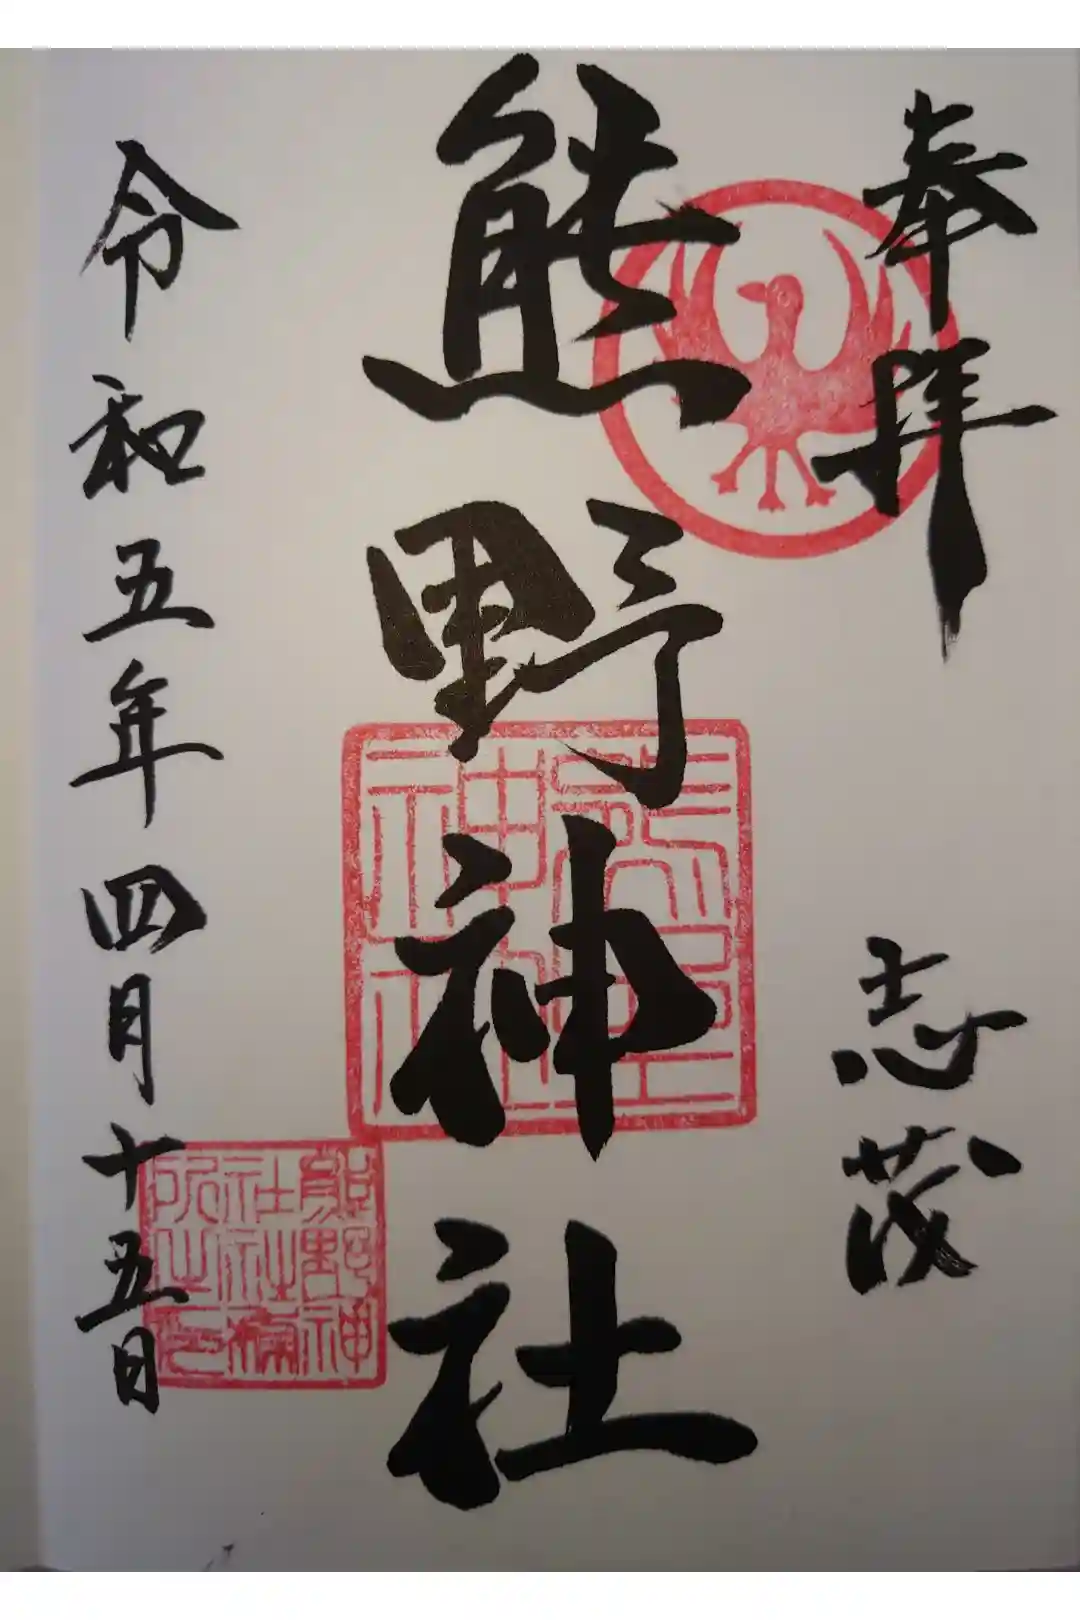 奉拝 志茂
熊野神社
令和五年四月十五日
熊野神
社社務
所之印